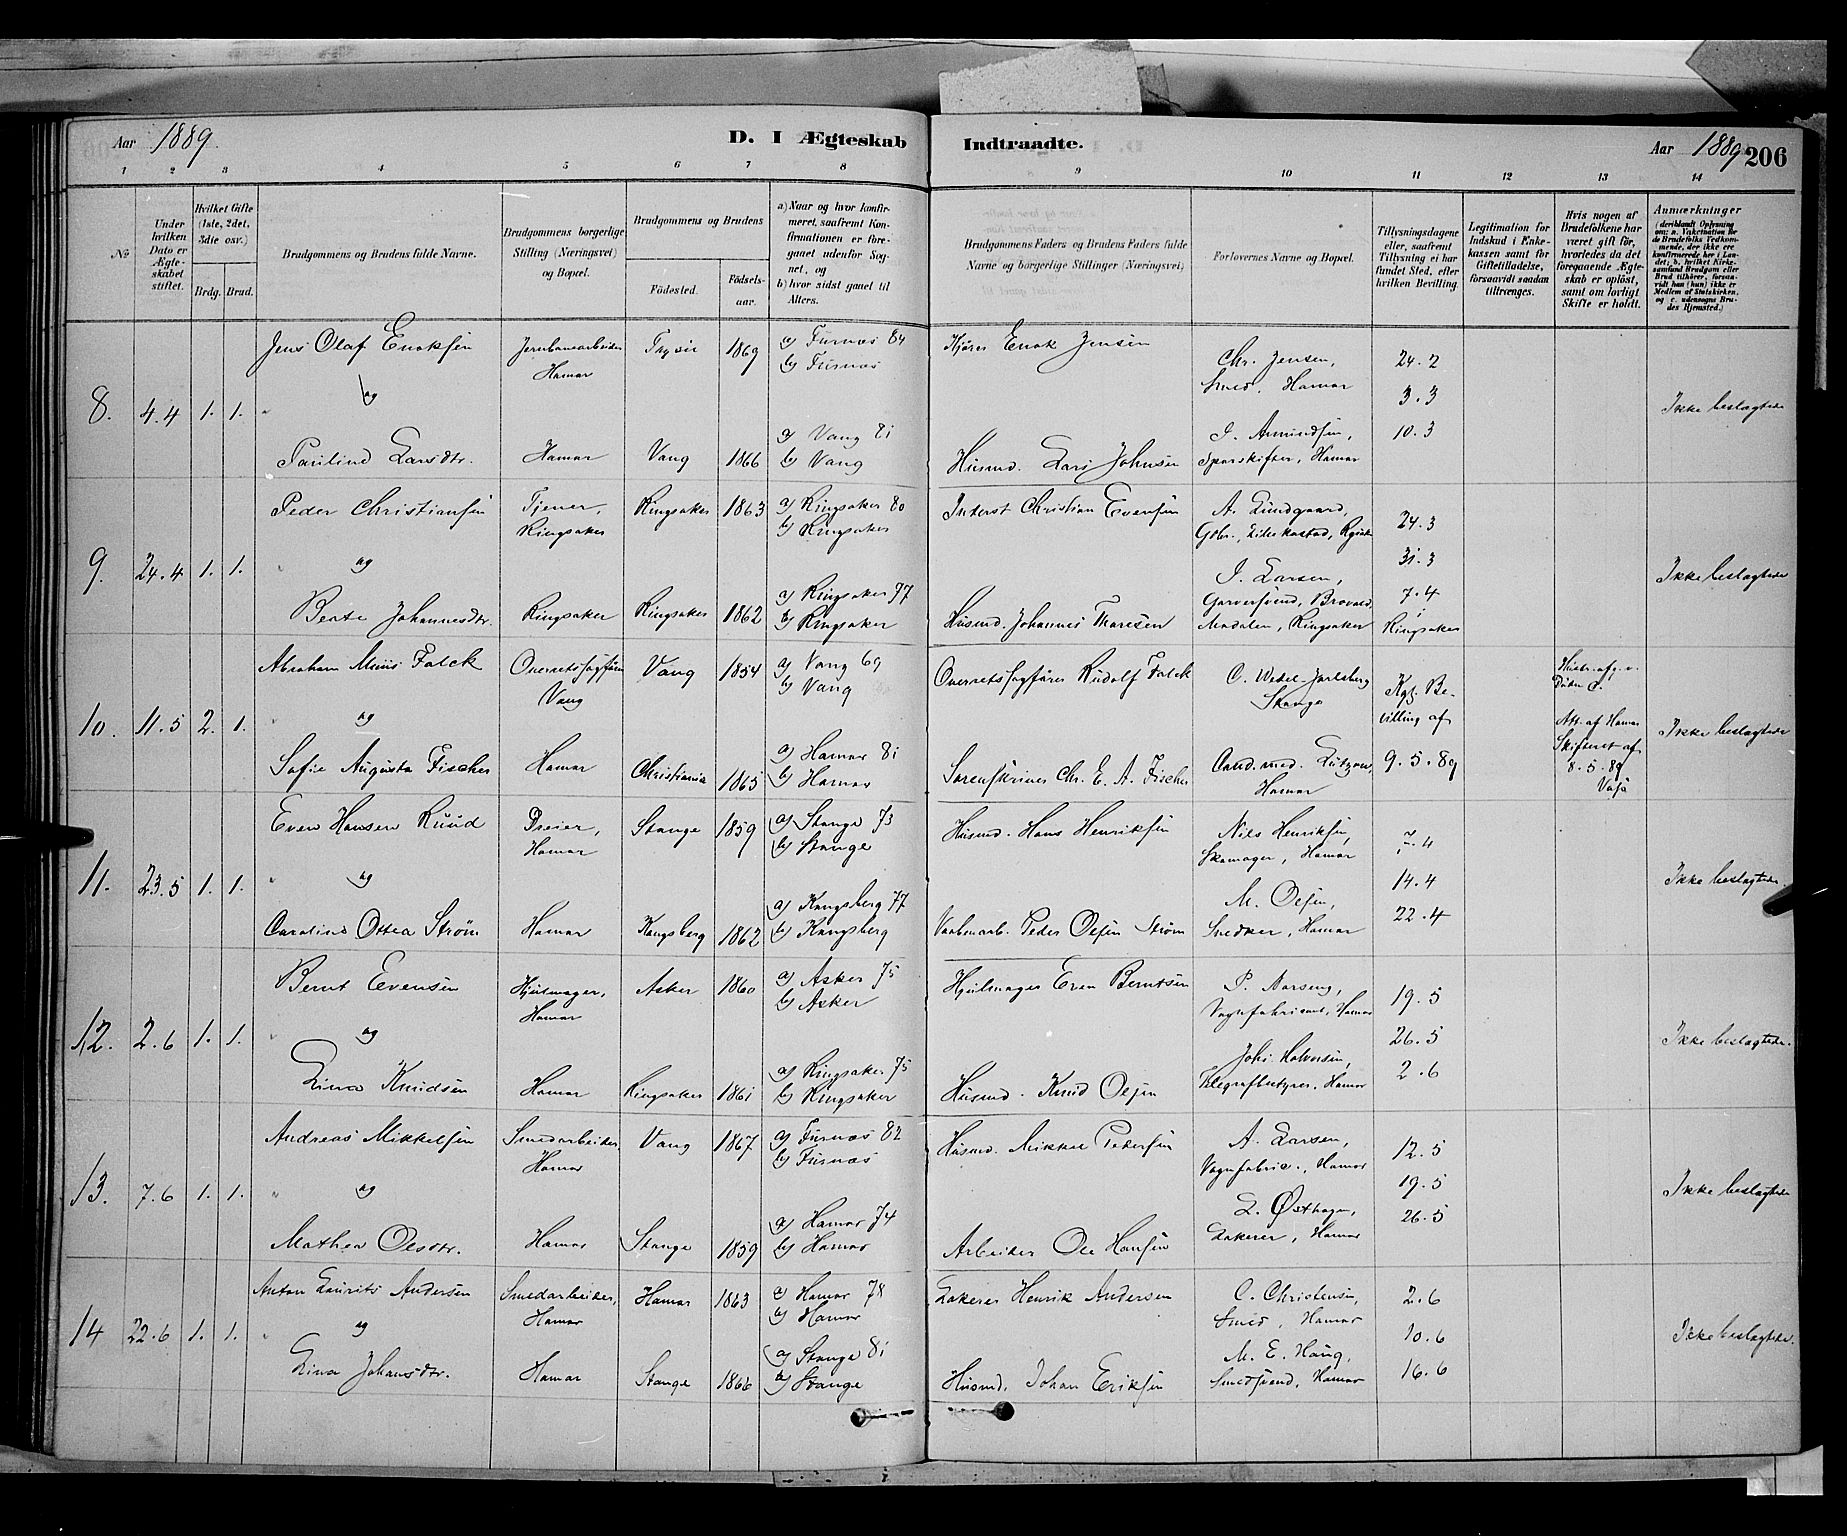 Aar 1889. D. I Ægteskab Indtraadte. Aar 1889 206
1 2 3 4 5 6 7 8 9 10 11 12 13 14
№
Under hvilken Dato er Ægteskabet stiftet.
Hvilket Gifte (1ste, 2det, 3die osv.)
Brdg. Brud.
Brudgommens og Brudens fulde Navne.
Brudgommens borgerlige Stilling (Næringsvei) og Bopæl.
Brudgommens og Brudens
Fødested. Fødselsaar.
a) Naar og hvor konfirmeret, saafremt Konfirmationen er foregaaet udenfor Sognet, og
b) hvor sidst ganet til Alters.
Brudgommens Faders og Brudens Faders fulde Navne og borgerlige Stillinger (Næringsvei)
Forlovernes Navne og Bopæl.
Tillysningsdagene eller, saafremt Tillysning ei har fundet Sted, efter hvilken Bevilling.
Legitimation for Indskud i Enkekassen samt for Giftetilladelse, forsaavidt saadan tiltrænges.
Hvis nogen af Brudefolkene har været gift før, hvorledes da det foregaaende Ægteskab er opløst, samt om lovligt Skifte er holdt.
Anmærkninger
(deriblandt Oplysning om: a. Vakcination for de Brudefolks Vedkommende, der ikke ere konfirmerede her i Landet; b. hvilket Kirkesamfund Brudgom eller Brud tilhører, forsaavidt han (hun) ikke er Medlem af Statskirken, og c. udensogns Brudes Hjemsted.)
8. 4.4 1. 1.
Jens Olaf Enoksen Jernbanearbeider Hamar 1869 a) Furnæs 84 b) Furnæs
Kjører Enok Jensen
Chr. Jensen, Smed, Hamar
24.2
3.3
10.3
og
Pauline Larsdtr. Hamar Vang 1866 a) Vang 81 b) Vang
Husmd. Lars Johnsen
J. Amundsen, Hamar
Ikke beslægtede
9. 24.4 1. 1.
Peder Christiansen Tjener, Ringsaker Ringsaker 1863 a) Ringsaker 80 b) Ringsaker
Inderst Christian Evensen
A. Lindgaard,
24.3
31.3
7.4
i Ringsaker
og
Beate Johannesdtr. Ringsaker Ringsaker 1862 a) Ringsaker 77 b) Ringsaker
Husmd. Johannes Thoresen
J. Larsen, Garversvend, Ringsaker
Ikke beslægtede
10. 11.5 2. 1.
Abraham Munis Falck Overretssagfører Vang Vang 1854 a) Vang 69 b) Vang
Overretssagfører Rudolf Falck
C. Wedel-Jarlsberg Stange
Kgl. Bevilling af
9.5.89
og
Sofie Augusta Fischer Hamar Christiania 1865 a) Hamar 81 b) Hamar
Sorenskriver Chr. E. A. Fischer
Cand. med. Lützow, Hamar
Att. af Hamar Skifteret af 8.5.89
Ikke beslægtede
11. 23.5 1. 1.
Even Hansen Ruud Dreier, Hamar Stange 1859 a) Stange 73 b) Stange
Husmd. Hans Henriksen
Nils Henriksen, Skomager, Hamar
7.4
14.4
22.4
og
Caroline Ottea Strøm Hamar Kongsberg 1862 a) Kongsberg 77 b) Kongsberg
Vaabenarb. Peder Olsen Strøm
M. Olsen, Snedker, Hamar
Ikke beslægtede.
12. 2.6 1. 1.
Bernt Evensen Hjulmager, Hamar Asker 1860 a) Asker 75 b) Asker
Hjulmager Even Berntsen
P. Narseng, Vognfabricant, Hamar
19.5
26.5
2.6
og
Lina Knudsen Hamar Ringsaker 1861 a) Ringsaker 75 b) Ringsaker
Husmd. Knud Olsen
Johs. Halvorsen, Telegrafbestyrer, Hamar
Ikke beslægtede.
13. 7.6 1. 1.
Andreas Mikkelsen Smedarbeider, Hamar Vang 1867 a) Furnæs 82 b) Furnæs
Husmd. Mikkel Pedersen
A. Larsen, Vognfabric., Hamar
12.5
19.5
26.5
og
Mathea Olsdtr. Hamar Stange 1859 a) Hamar 74 b) Hamar
Arbeider Ole Hansen
L. Østhagen, Lakerer, Hamar
Ikke beslægtede
14 22.6 1. 1.
Anton Laurits Andersen Smedarbeider, Hamar Hamar 1863 a) Hamar 78 b) Hamar
Lakerer Henrik Andersen
C. Christensen, Smed, Hamar
2.6
10.6
16.6
og
Lina Johansdtr. Hamar Stange 1866 a) Stange 81 b) Stange
Husmd. Johan Eriksen
M. E. Haug, Smedsvend, Hamar
Ikke beslægtede.